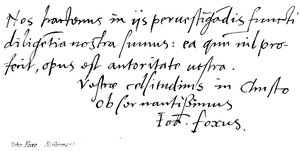 Nos hactenus in ijs pervestigādis functi
diligētia nostra sumus: ea quū nil pro-
ferit, opus est autoritate vestra.
Vestræ celsitudinis in Christo
observantißimus
Ioā. foxus.